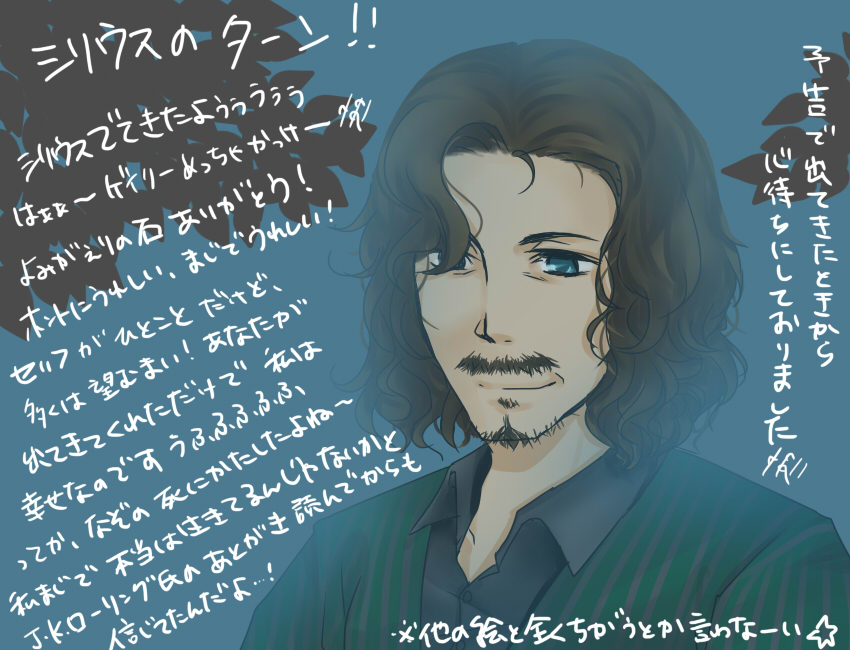 シリウスのターン!!
シリウスでてきたようぅぅぅぅ
はぁぁ〜 ゲイリーめっちゃかっけー
よみがえりの石ありがとう!
ホントにうれしい、まじでうれしい!
セリフがひとことだけど、
多くは望むまい!あなたが
出てきてくれただけで私は
幸せなのですうふふふふふ、
ってか、なぞの死にかたしたよね〜
私まじで本当は生きてるんじゃないかと
J.K.ローリング氏のあとがき読んでからも
信じてたんだよ…!
予告で出てきたときから
心待ちにしておりました
※他の絵と全くちがうとか言わなーい☆